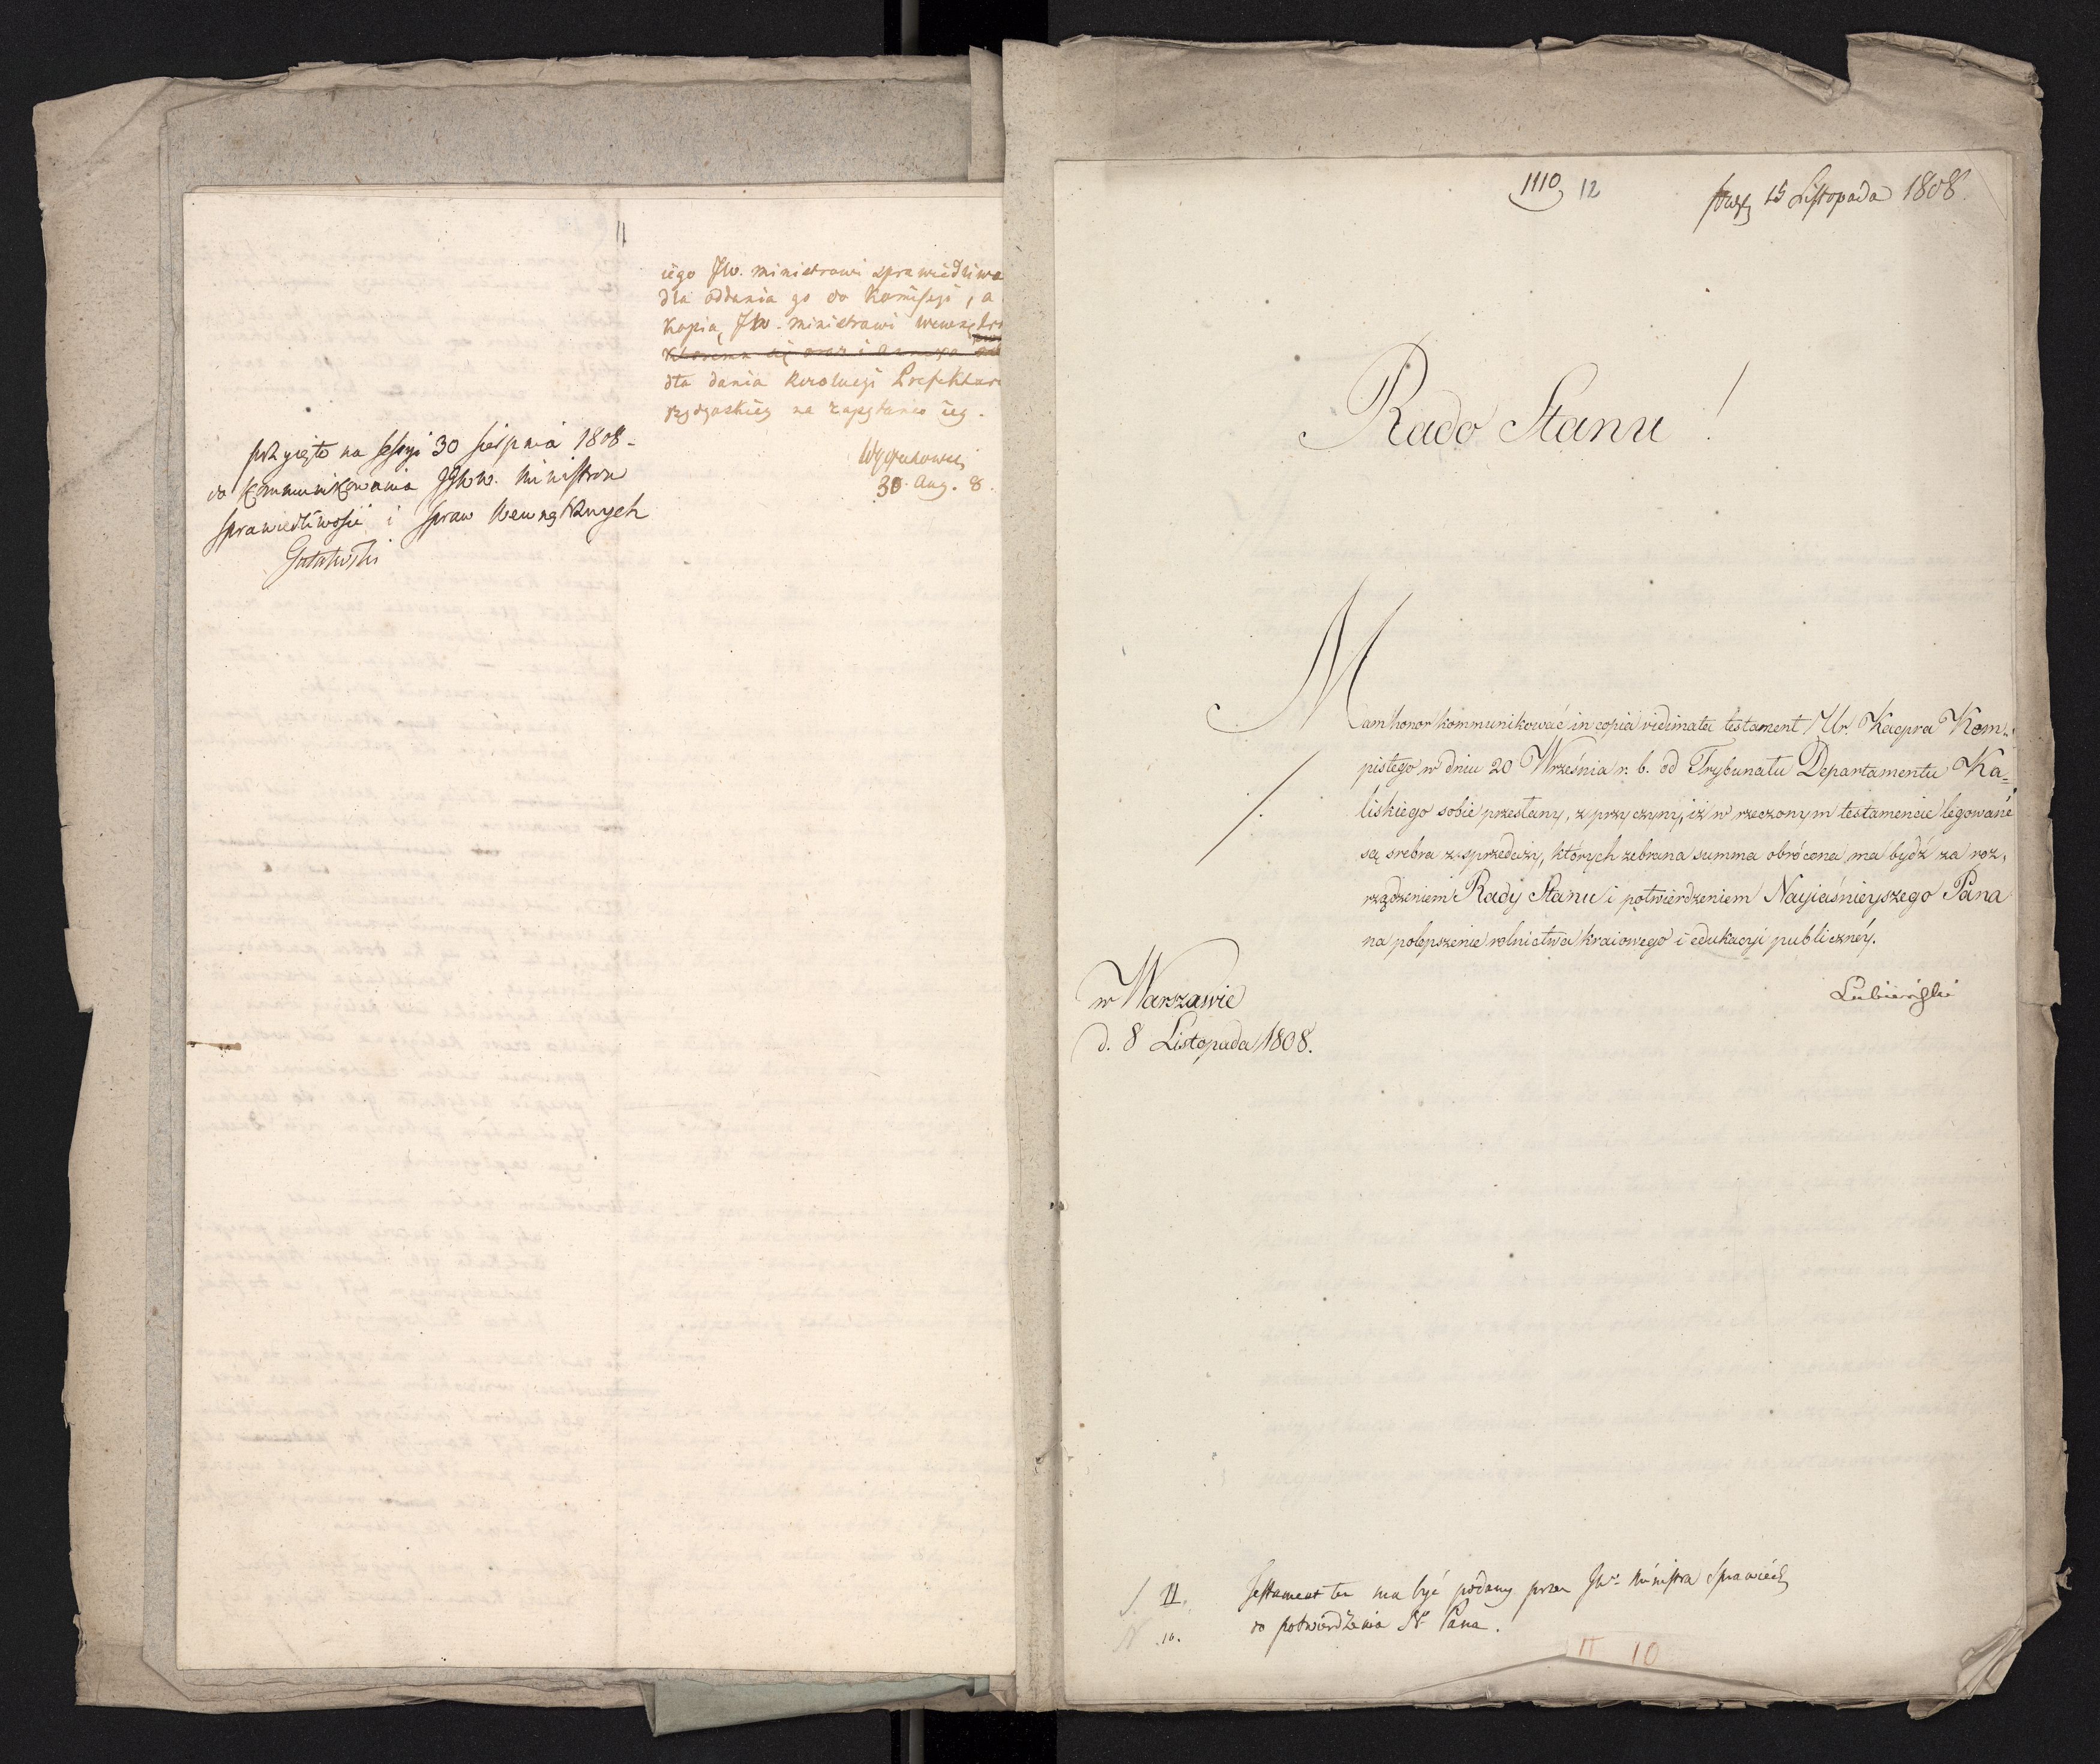 11
iego JW. ministrowi sprawiedliwo
dla oddania go do Komissyi, a
Kopia, JW. ministrowi wewnętrz
któremu się
dla dania Rezolucyi Prefektow
Bydgoskiey na zapytanie ieg.
30. Aug. 8.
przyięto na sessyi 30 sierpnia 1808 -
do kommunikowania JJWW. Ministrom
sprawiedliwości i spraw Wewnętrznych
1110 12
15 Listopada 1808.
Rado Stanu!
Mam honor kommunikować in copia vidimata testament Ur. Kacpra Kem„
pistego w dniu 20 Września r. b. od Trybunału Departamentu Ka=
liskiego sobie przesłany, z przyczyny, iż w rzeczonym testamencie legowane
są srebra z sprzedaży, których zebrana summa obrócona ma bydź za roz„
rządzeniem Rady Stanu i potwierdzeniem Nayiaśnieyszego Pana
na polepszenie rolnictwa kraiowego i edukacyi publiczney.
Lubieński
w Warszawie
d. 8 Listopada 1808.
S. II. Testament ten ma być podany przez JW. Ministra Sprawiedl
N 10. do potwierdzenia N. Pana.
II 10